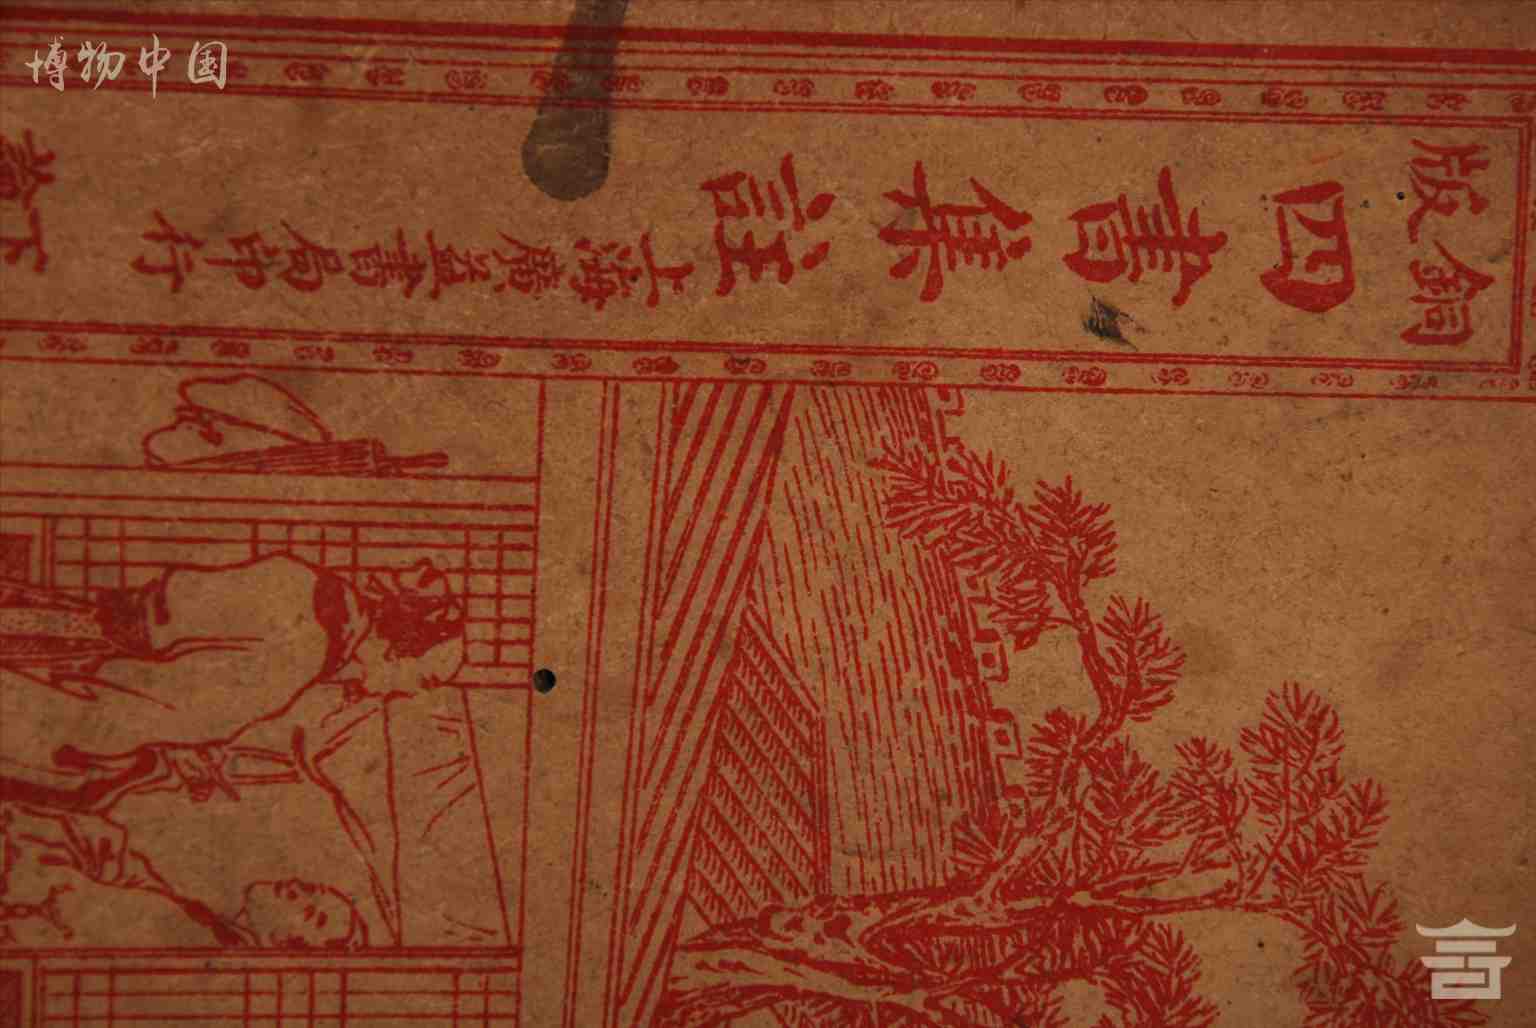 博物中国
銅版
四書集註
上海廣益書局印行
下